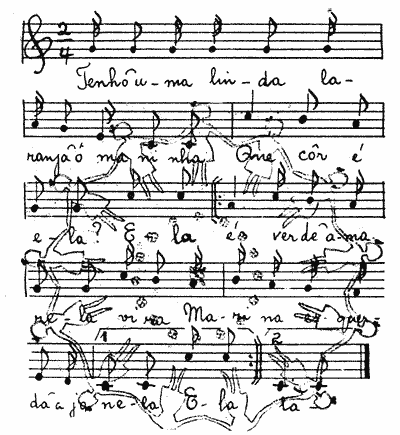 2 4
Tenhô u-ma lin-da la-
ranjaô maninha Que côr é
e-la? E-la é verde â ma
re la vira Ma-ri na es quer-
1 2
da â ja ne-la E-la la